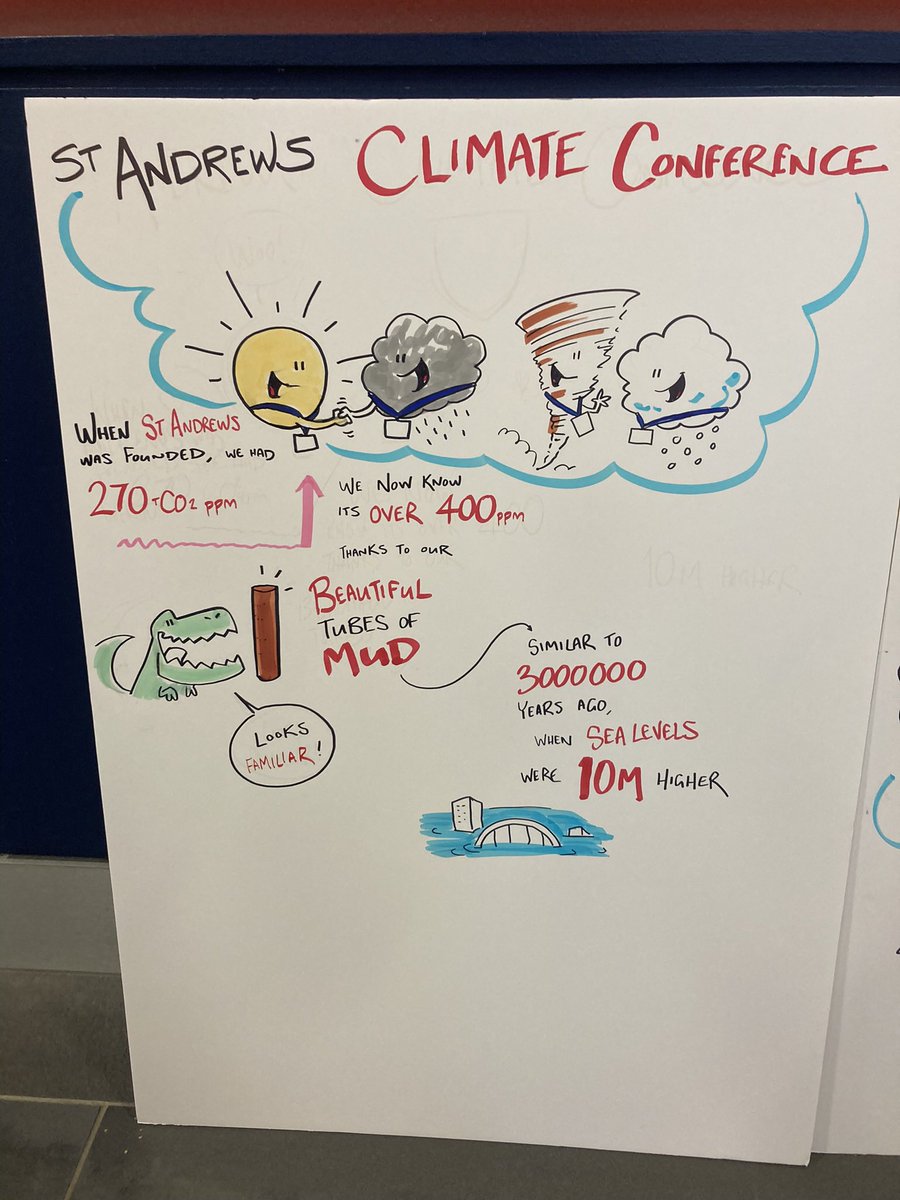 ST ANDREWS CLIMATE CONFERENCE
WHEN ST ANDREWS
WAS FOUNDED, WE HAD
270 CO2 PPM
WE NOW KNOW
ITS OVER 400 PPM
THANKS TO OUR
BEAUTIFUL
TUBES OF
MUD
LOOKS
FAMILIAR!
SIMILAR TO
3000000
YEARS AGO,
WHEN SEA LEVELS
WERE 10M HIGHER